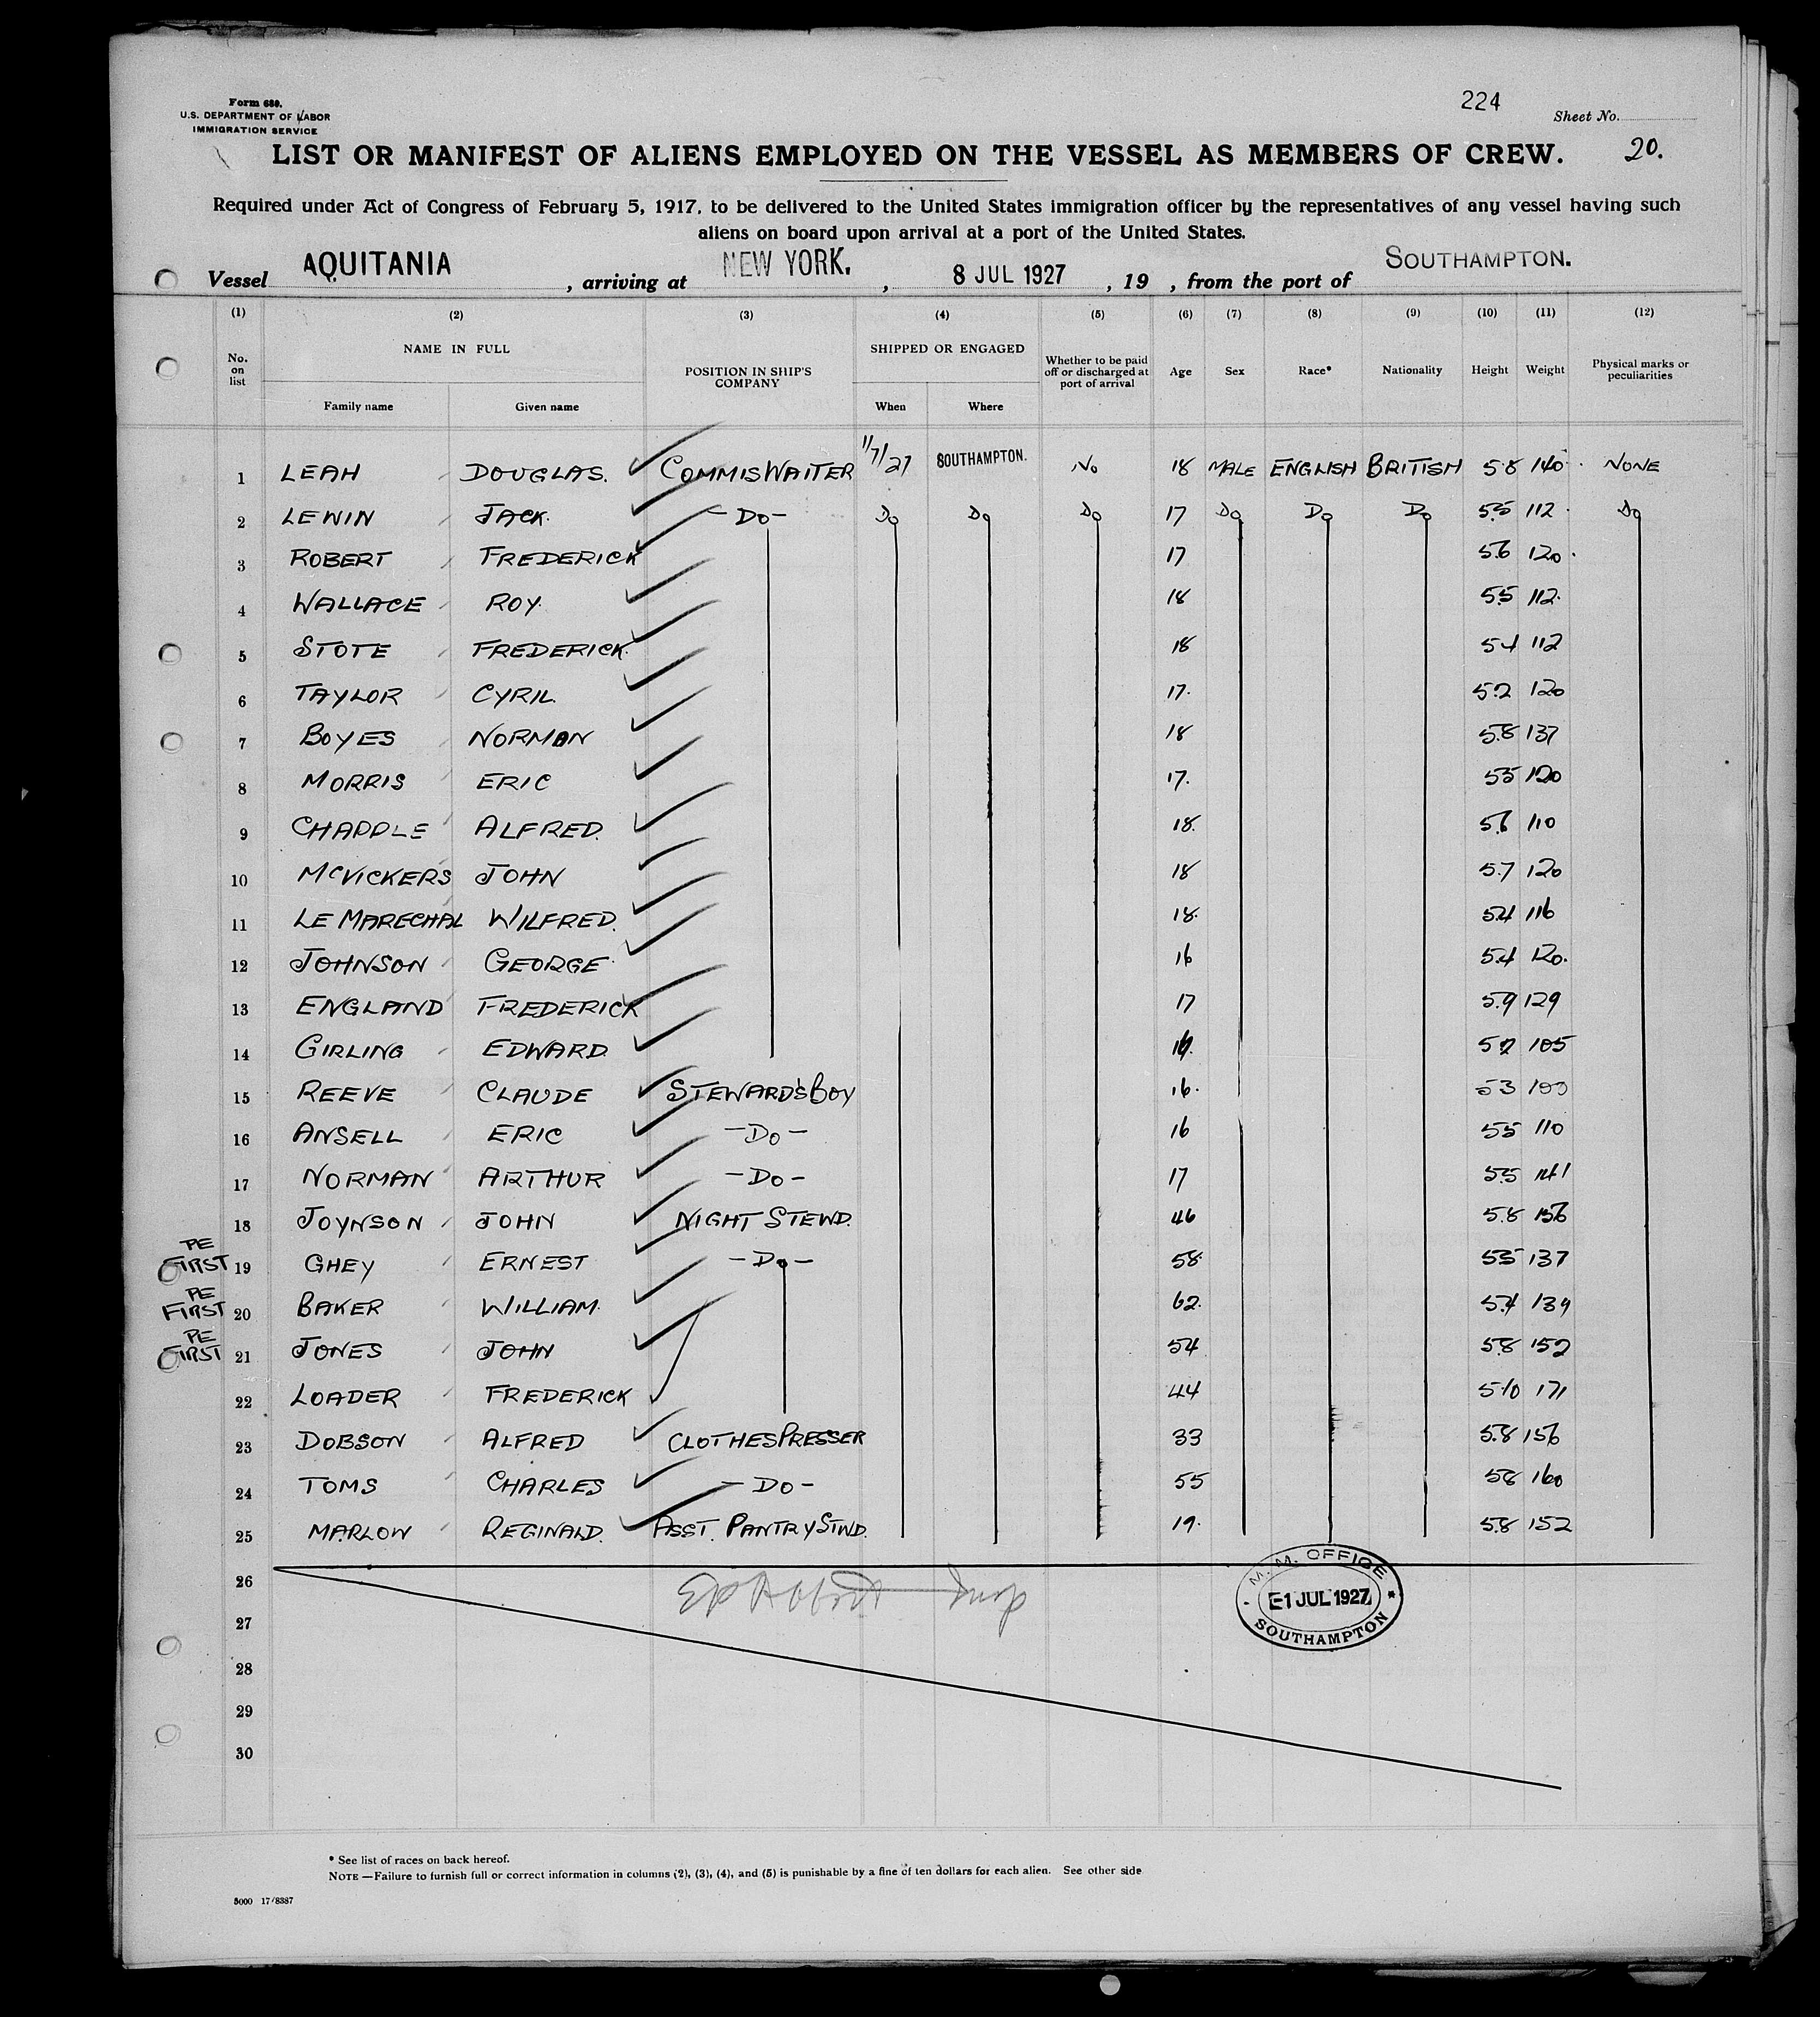 Form 680.
U.S. DEPARTMENT OF LABOR
IMMIGRATION SERVICE
224
Sheet No.
20.
LIST OR MANIFEST OF ALIENS EMPLOYED ON THE VESSEL AS MEMBERS OF CREW.
Required under Act of Congress of February 5, 1917, to be delivered to the United States immigration officer by the representatives of any vessel having such
aliens on board upon arrival at a port of the United States.
Vessel AQUITANIA, arriving at NEW YORK., 8 JUL 1927, 19 , from the port of SOUTHAMPTON.
(1) (2) (3) (4) (5) (6) (7) (8) (9) (10) (11) (12)
No. on list NAME IN FULL Family name Given name POSITION IN SHIP'S COMPANY SHIPPED OR ENGAGED When Where Whether to be paid off or discharged at port of arrival Age Sex Race* Nationality Height Weight Physical marks or peculiarities
1 LEAH DOUGLAS. COMMIS WAITER 1/7/27 SOUTHAMPTON. No 18 MALE ENGLISH BRITISH 5.8 140 NONE
2 LEWIN JACK. -Do- Do Do Do 17 Do Do Do 5.5 112 Do
3 ROBERT FREDERICK 17 5.6 120
4 WALLACE ROY. 18 5.5 112.
5 STOTE FREDERICK. 18 5.4 112
6 TAYLOR CYRIL. 17. 5.2 120
7 BOYES NORMAN 18 5.8 137
8 MORRIS ERIC 17. 5.5 120
9 CHAPPLE ALFRED. 18. 5.6 110
10 McVICKERS JOHN 18 5.7 120
11 LE MARECHAL WILFRED. 18. 5.4 116
12 JOHNSON GEORGE 16 5.4 120.
13 ENGLAND FREDERICK 17 5.9 129
14 GIRLING EDWARD. 105
15 REEVE CLAUDE STEWARD'S BOY 16. 5.3 100
16 ANSELL ERIC -Do- 16 5.5 110
17 NORMAN ARTHUR -Do- 17 5.5 141
18 JOYNSON JOHN NIGHT STEWD. 46 5.8 156
PE
FIRST 19 GHEY ERNEST -Do- 58. 5.5 137
PE
FIRST 20 BAKER WILLIAM. 62. 5.4 139
PE
FIRST 21 JONES JOHN 54 5.8 152
22 LOADER FREDERICK 44 5.10 171
23 DOBSON ALFRED CLOTHES PRESSER 33 5.8 156
24 TOMS CHARLES -Do- 55 5.8 160
25 MARLOW REGINALD. ASST. PANTRY STWD. 19. 5.8 152
26
27
28
29
30
M. M. OFFICE
E-1 JUL 1927
SOUTHAMPTON
* See list of races on back hereof.
NOTE —Failure to furnish full or correct information in columns (2), (3), (4), and (5) is punishable by a fine of ten dollars for each alien. See other side
5000 17/8387